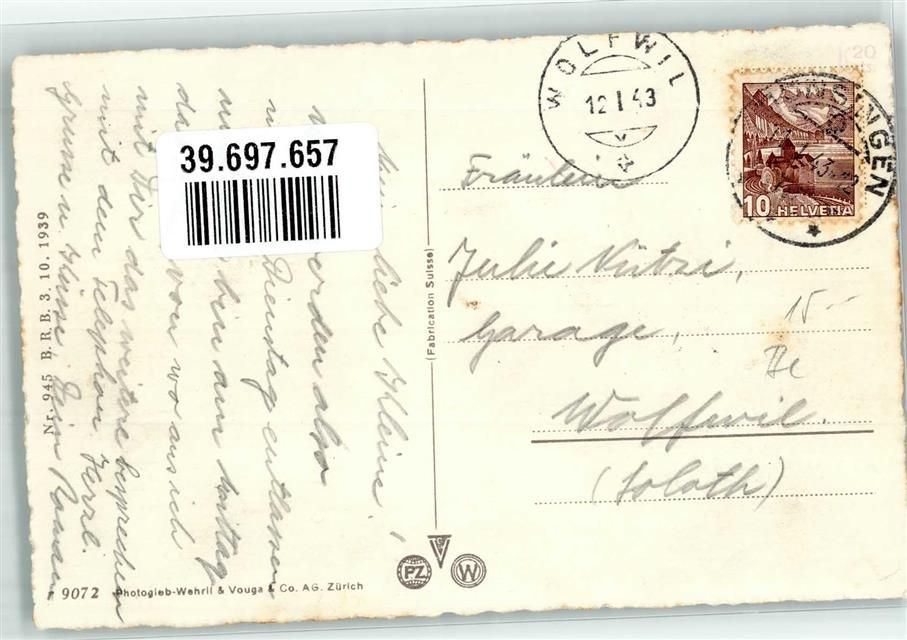 39.697.657
WOLFWIL
12. I 43
MÜNSINGEN
10 HELVETIA
Fräulein
Julie Kützi,
Garage,
Wolfwil.
(Soloth)
15.--
Be
Meine liebe Kleine!
werden also
Dienstag entlassen
bin am Mittag
von wo aus ich
mit Dir das weitere besprechen
mit dem Telephon. Herzl.
Grüsse u. Küsse, Dein
(Fabrication Suisse)
Nr. 945 B. R. B. 3. 10. 1939
9072 Photogleb-Wehrli & Vouga & Co. AG. Zürich
PZ
W